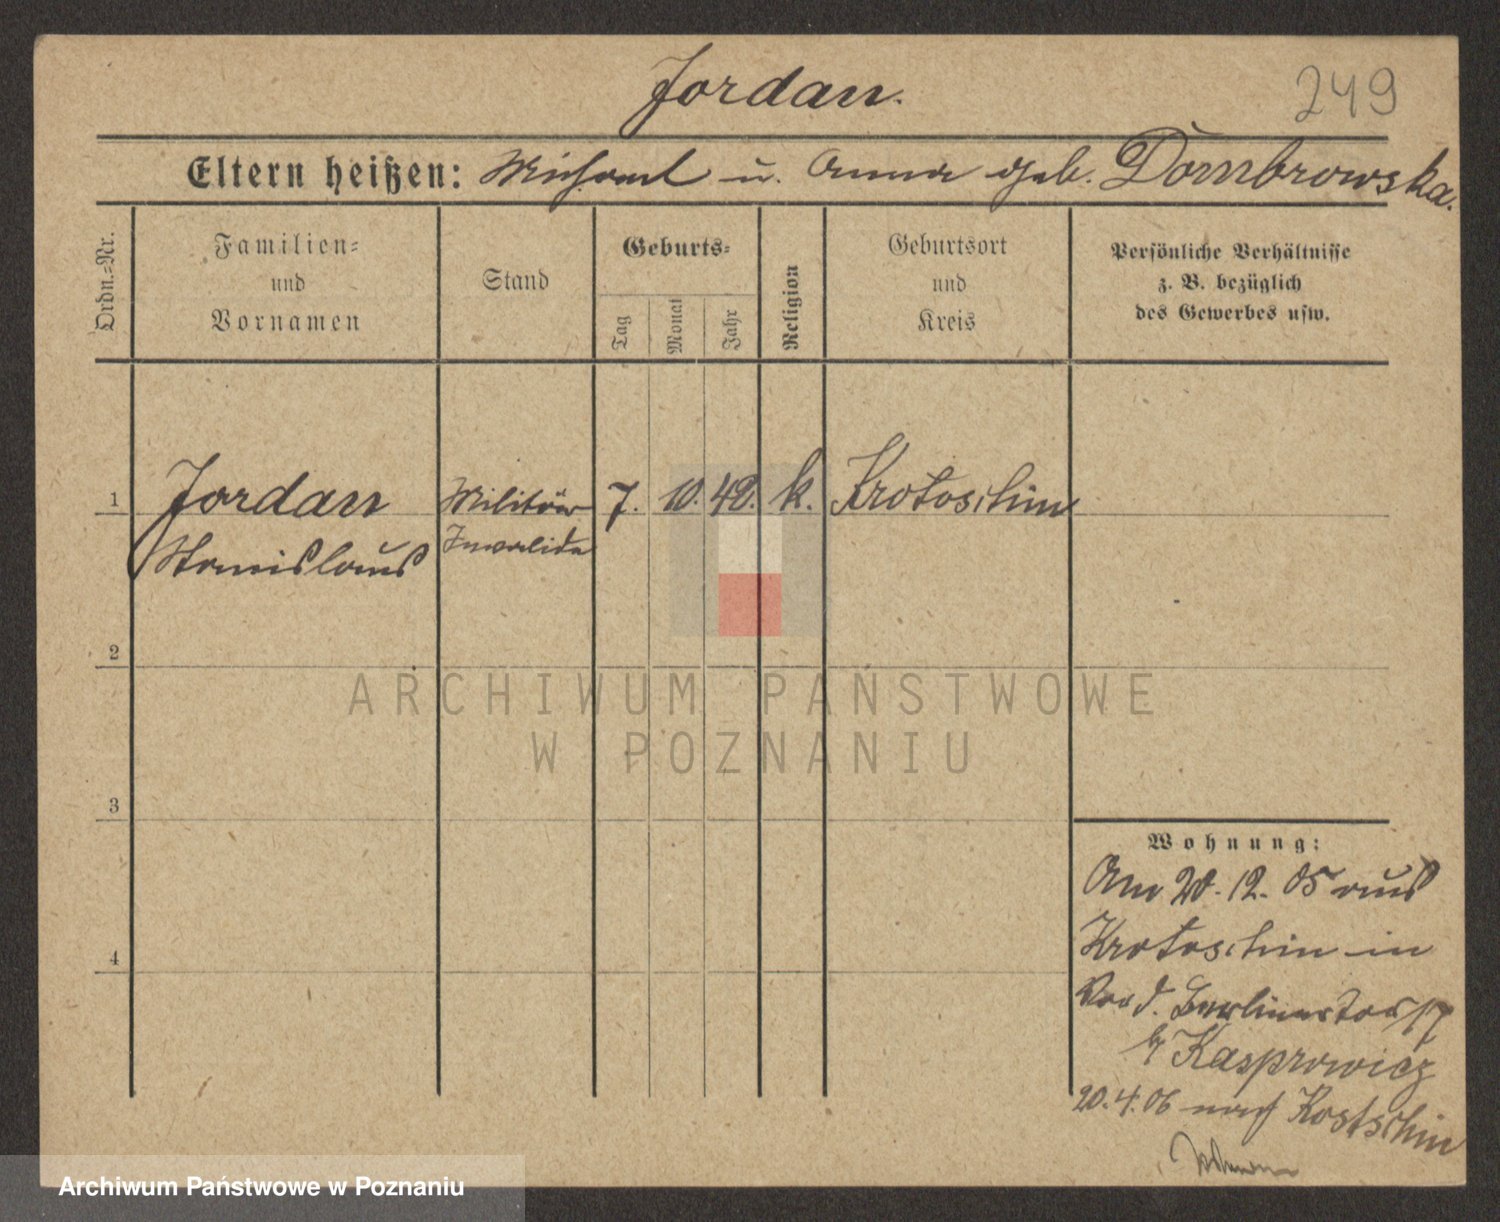 Jordan.
249
Eltern heißen: Michael u. Anna geb. Dombrowska.
Ordn.-Nr.
Familien-
und
Vornamen
Stand
Geburts-
Tag
Monat
Jahr
Religion
Geburtsort
und
Kreis
Persönliche Verhältnisse
z. B. bezüglich
des Gewerbes usw.
1
Jordan
Stanislaus
Militär
Invalide
7.
10.
42.
k.
Krotoschin
2
3
4
ARCHIWUM PAŃSTWOWE
W POZNANIU
Wohnung:
Am 20.12.05 aus
Krotoschin in
Vor d. Berlinertor
b/ Kasprowicz
20.4.06 nach Kostschin
Archiwum Państwowe w Poznaniu